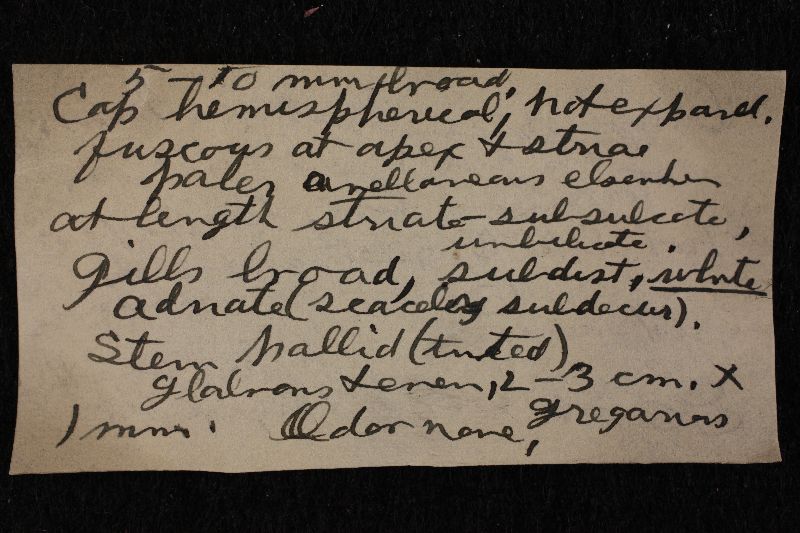 5 - 10 mm broad,
Cap hemispherical, not expand.
fuscous at apex & striae
paler avellaneous elsewhere
at length striate - subsulcate,
umbilicate.
gills broad, subdist, white
adnate (scarcely subdecur).
Stem pallid (tinted)
glabrous & even, 2-3 cm. x
1 mm. Odor none, gregarious